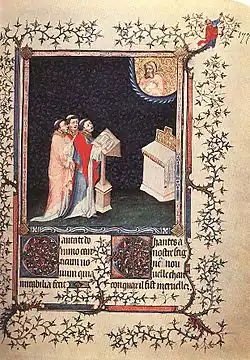 Cantate do
mino can
ticum no
uum quia
mirabilia fecit
Chantes a
nostre seig
neur nou
uelle chan
con quar il fist merueilles